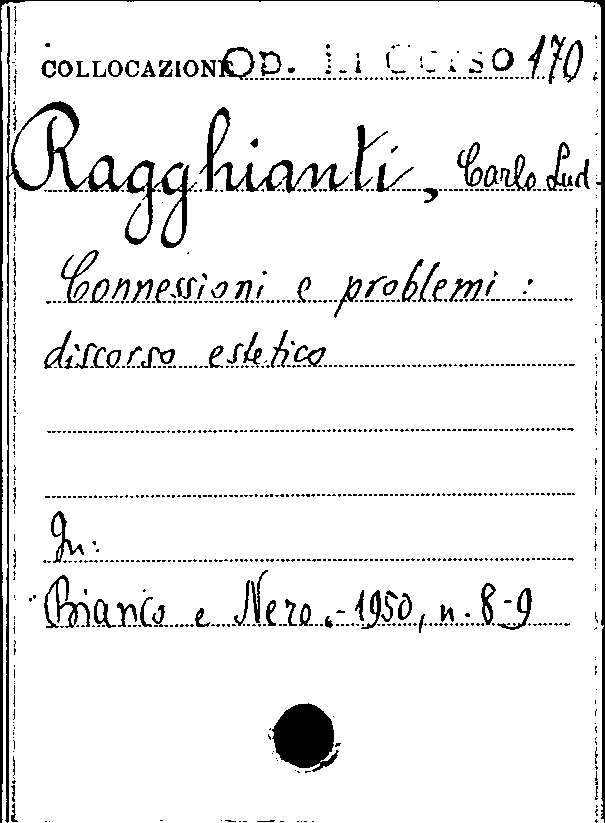 COLLOCAZIONE Op. in Corso 170
Ragghianti, Carlo Lud.
Connessioni e problemi :
discorso estetico
In:
Bianco e Nero.- 1950, n. 8-9